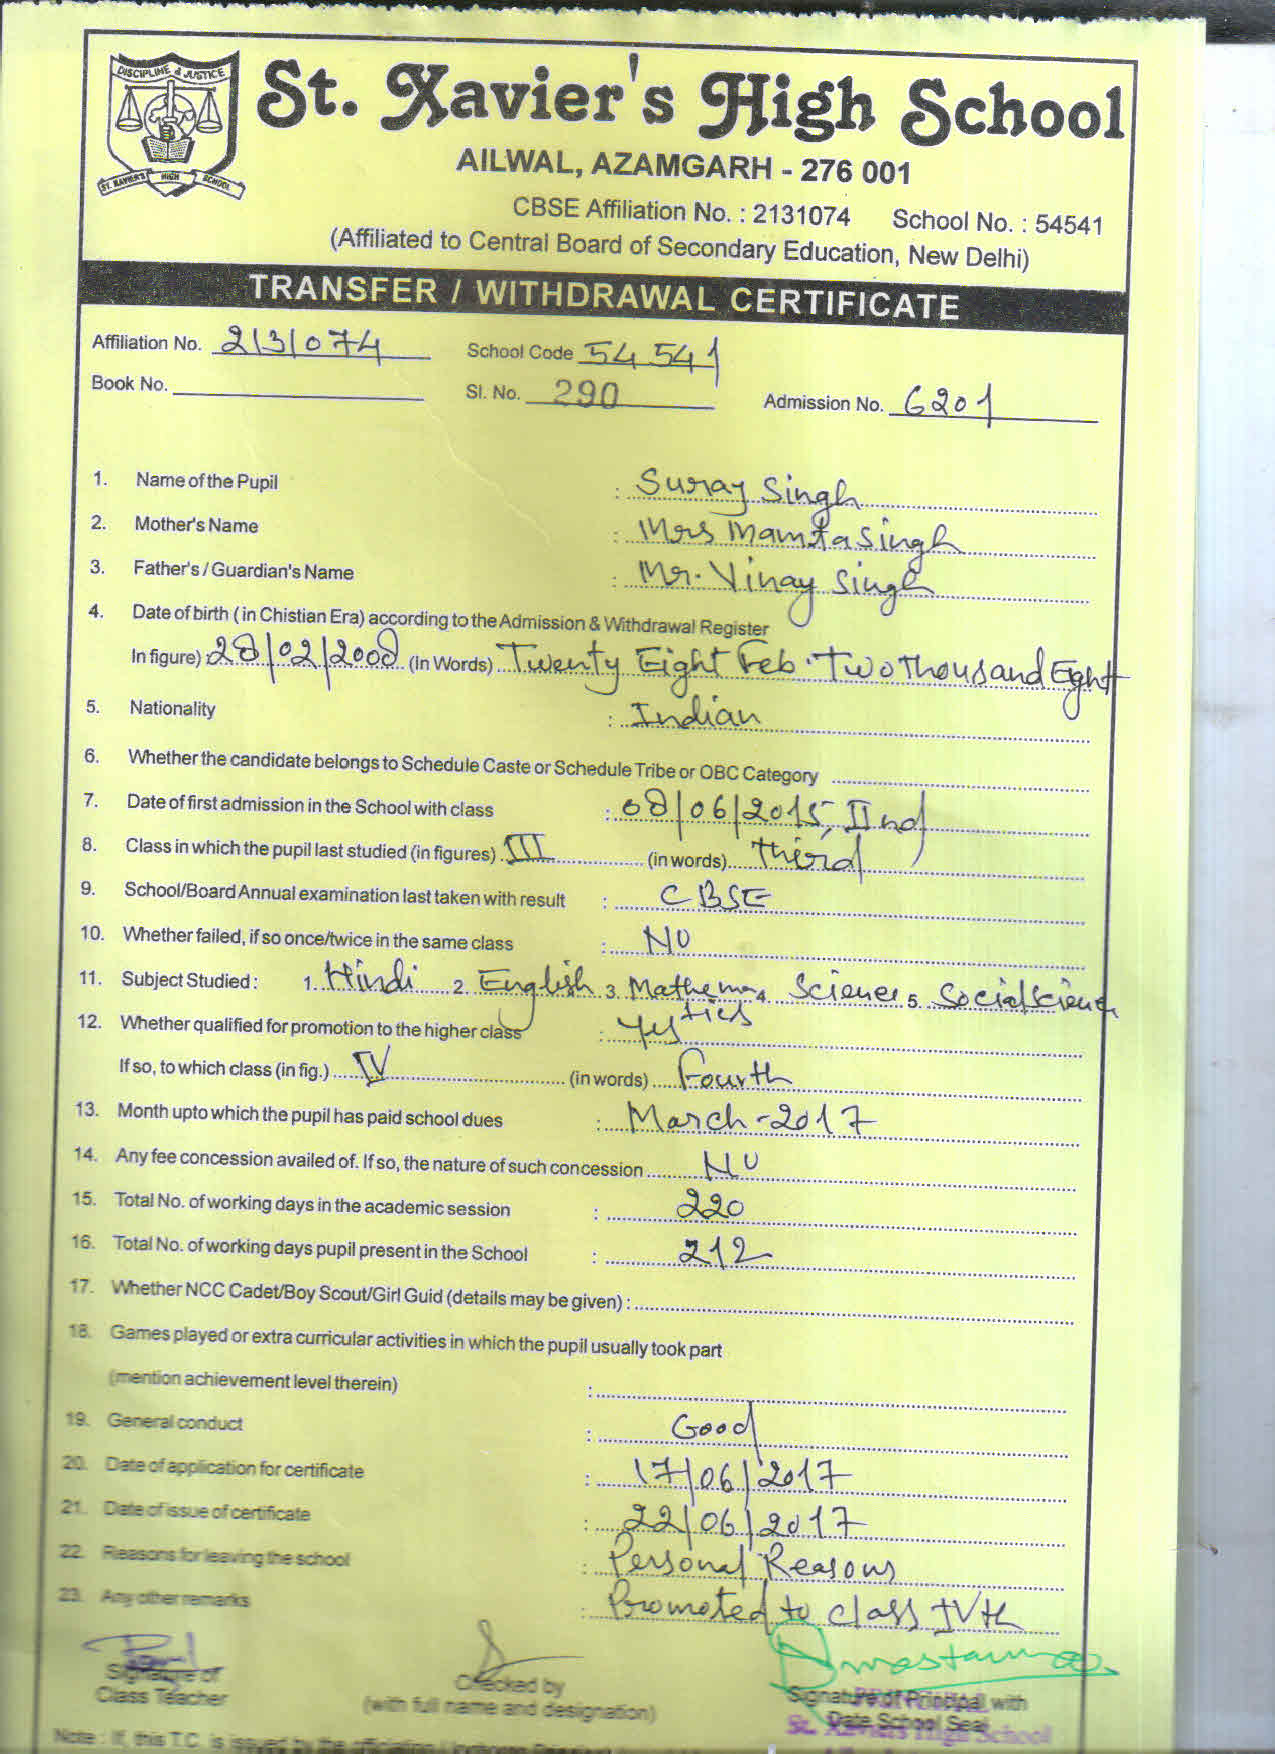 DISCIPLINE & JUSTICE
ST. XAVIER'S HIGH SCHOOL
St. Xavier's High School
AILWAL, AZAMGARH - 276 001
CBSE Affiliation No. : 2131074 School No. : 54541
(Affiliated to Central Board of Secondary Education, New Delhi)
TRANSFER / WITHDRAWAL CERTIFICATE
Affiliation No. 2131074 School Code 54541
Book No. Sl. No. 290 Admission No. 6201
1. Name of the Pupil : Suraj Singh
2. Mother's Name : Mrs Mamta Singh
3. Father's / Guardian's Name : Mr. Vinay Singh
4. Date of birth ( in Chistian Era) according to the Admission & Withdrawal Register
In figure) : 28/02/2008 (In Words) Twenty Eight Feb. Two Thousand Eight
5. Nationality : Indian
6. Whether the candidate belongs to Schedule Caste or Schedule Tribe or OBC Category
7. Date of first admission in the School with class : 08/06/2015, IInd
8. Class in which the pupil last studied (in figures) III (in words) Third
9. School/Board Annual examination last taken with result : CBSE
10. Whether failed, if so once/twice in the same class : No
11. Subject Studied : 1. Hindi 2. English 3. Mathematics 4. Science 5. Social Science
12. Whether qualified for promotion to the higher class : Yes
If so, to which class (in fig.) IV (in words) Fourth
13. Month upto which the pupil has paid school dues : March-2017
14. Any fee concession availed of. If so, the nature of such concession No
15. Total No. of working days in the academic session : 220
16. Total No. of working days pupil present in the School : 212
17. Whether NCC Cadet/Boy Scout/Girl Guid (details may be given) :
18. Games played or extra curricular activities in which the pupil usually took part
(mention achievement level therein) :
19. General conduct : Good
20. Date of application for certificate : 17/06/2017
21. Date of issue of certificate : 22/06/2017
22. Reasons for leaving the school : Personal Reasons
23. Any other remarks : Promoted to class IVth
Signature of Checked by Signature of Principal with
Class Teacher (with full name and designation) Date School Seal
St. Xavier's High School
Note : If, this T.C. is issued by the officiating